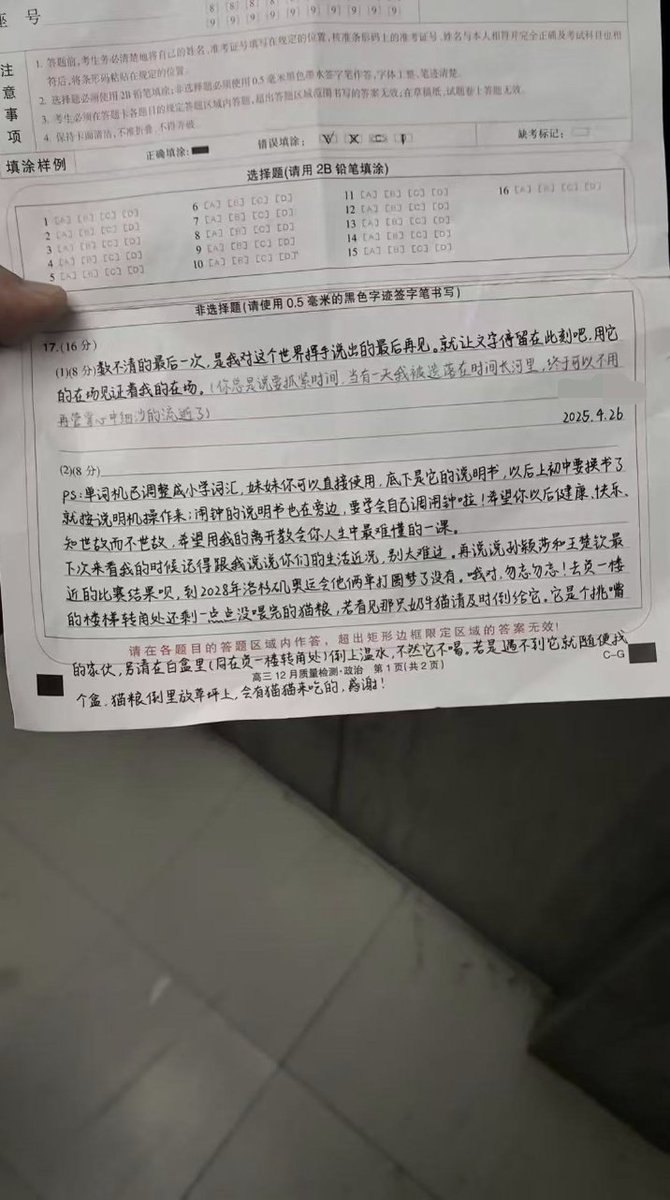 座 号
[8] [8] [8] [8] [8] [8] [8] [8] [8]
[9] [9] [9] [9] [9] [9] [9] [9] [9]
注意事项
1. 答题前,考生务必清楚地将自己的姓名、准考证号填写在规定的位置,核准条形码上的准考证号、姓名与本人相符并完全正确及考试科目也相
符后,将条形码粘贴在规定的位置.
2. 选择题必须使用2B铅笔填涂;非选择题必须使用0.5毫米黑色墨水签字笔作答,字体工整、笔迹清楚.
3. 考生必须在答题卡各题目的规定答题区域内答题,超出答题区域范围书写的答案无效;在草稿纸、试题卷上答题无效.
4. 保持卡面清洁,不准折叠、不得弄破.
填涂样例
正确填涂:
错误填涂:
缺考标记:
选择题(请用 2B 铅笔填涂)
1 [A] [B] [C] [D]
2 [A] [B] [C] [D]
3 [A] [B] [C] [D]
4 [A] [B] [C] [D]
5 [A] [B] [C] [D]
6 [A] [B] [C] [D]
7 [A] [B] [C] [D]
8 [A] [B] [C] [D]
9 [A] [B] [C] [D]
10 [A] [B] [C] [D]
11 [A] [B] [C] [D]
12 [A] [B] [C] [D]
13 [A] [B] [C] [D]
14 [A] [B] [C] [D]
15 [A] [B] [C] [D]
16 [A] [B] [C] [D]
非选择题(请使用 0.5 毫米的黑色字迹签字笔书写)
17.(16 分)
(1)(8 分)数不清的最后一次,是我对这个世界挥手说出的最后再见。就让文字停留在此刻吧,用它
的在场见证着我的在场。(你总是说要抓紧时间,当有一天我被遗落在时间长河里,终于可以不用
再管掌心中细沙的流逝了)
2025.4.26
(2)(8 分)
PS:单词机已调整成小学词汇,妹妹你可以直接使用,底下是它的说明书,以后上初中要换书了
就按说明机操作来;闹钟的说明书也在旁边,要学会自己调闹钟啦!希望你以后健康、快乐、
知世故而不世故,希望用我的离开教会你人生中最难懂的一课。
下次来看我的时候记得跟我说说你们的生活近况,别太难过。再说说孙颖莎和王楚钦最
近的比赛结果呗,到2028年洛杉矶奥运会他俩单打圆梦了没有。哦对,勿忘勿忘!去负一楼
的楼梯转角处还剩一点点没喂完的猫粮,若看见那只奶牛猫请及时倒给它,它是个挑嘴
请在各题目的答题区域内作答,超出矩形边框限定区域的答案无效!
的家伙,另请在白盒里(同在负一楼转角处)倒上温水,不然它不喝。若是遇不到它就随便找
高三 12 月质量检测·政治 第 1 页(共 2 页)
C-G
个盒,猫粮倒里放草坪上,会有猫猫来吃的,感谢!